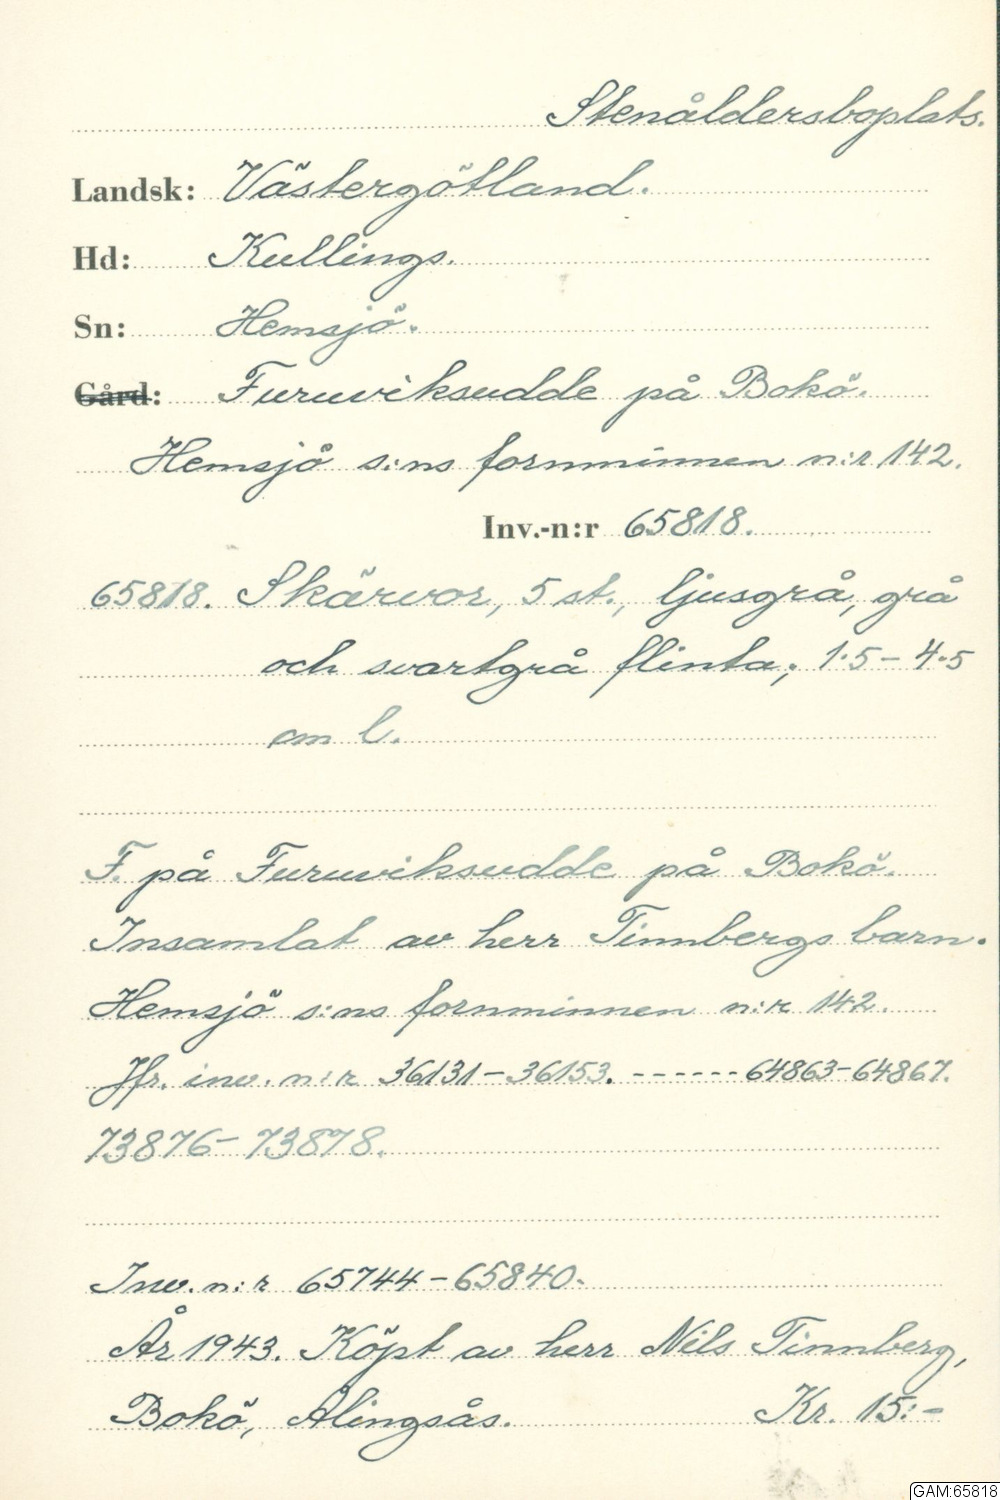 Stenåldersboplats.
Landsk: Västergötland.
Hd: Kullings.
Sn: Hemsjö.
Gård: Furuviksudde på Bokö.
Hemsjö s:ns fornminnen n:r 142.
Inv.-n:r 65818.
65818. Skärvor, 5 st., ljusgrå, grå
och svartgrå flinta; 1.5 - 4.5
cm l.
F. på Furuviksudde på Bokö.
Insamlat av herr Tinnbergs barn.
Hemsjö s:ns fornminnen n:r 142.
Jfr. inv. n:r 36131-36153. ------ 64863-64867.
73876-73878.
Inv. n:r 65744-65840.
År 1943. Köpt av herr Nils Tinnberg,
Bokö, Alingsås. Kr. 15:-
GAM:65818